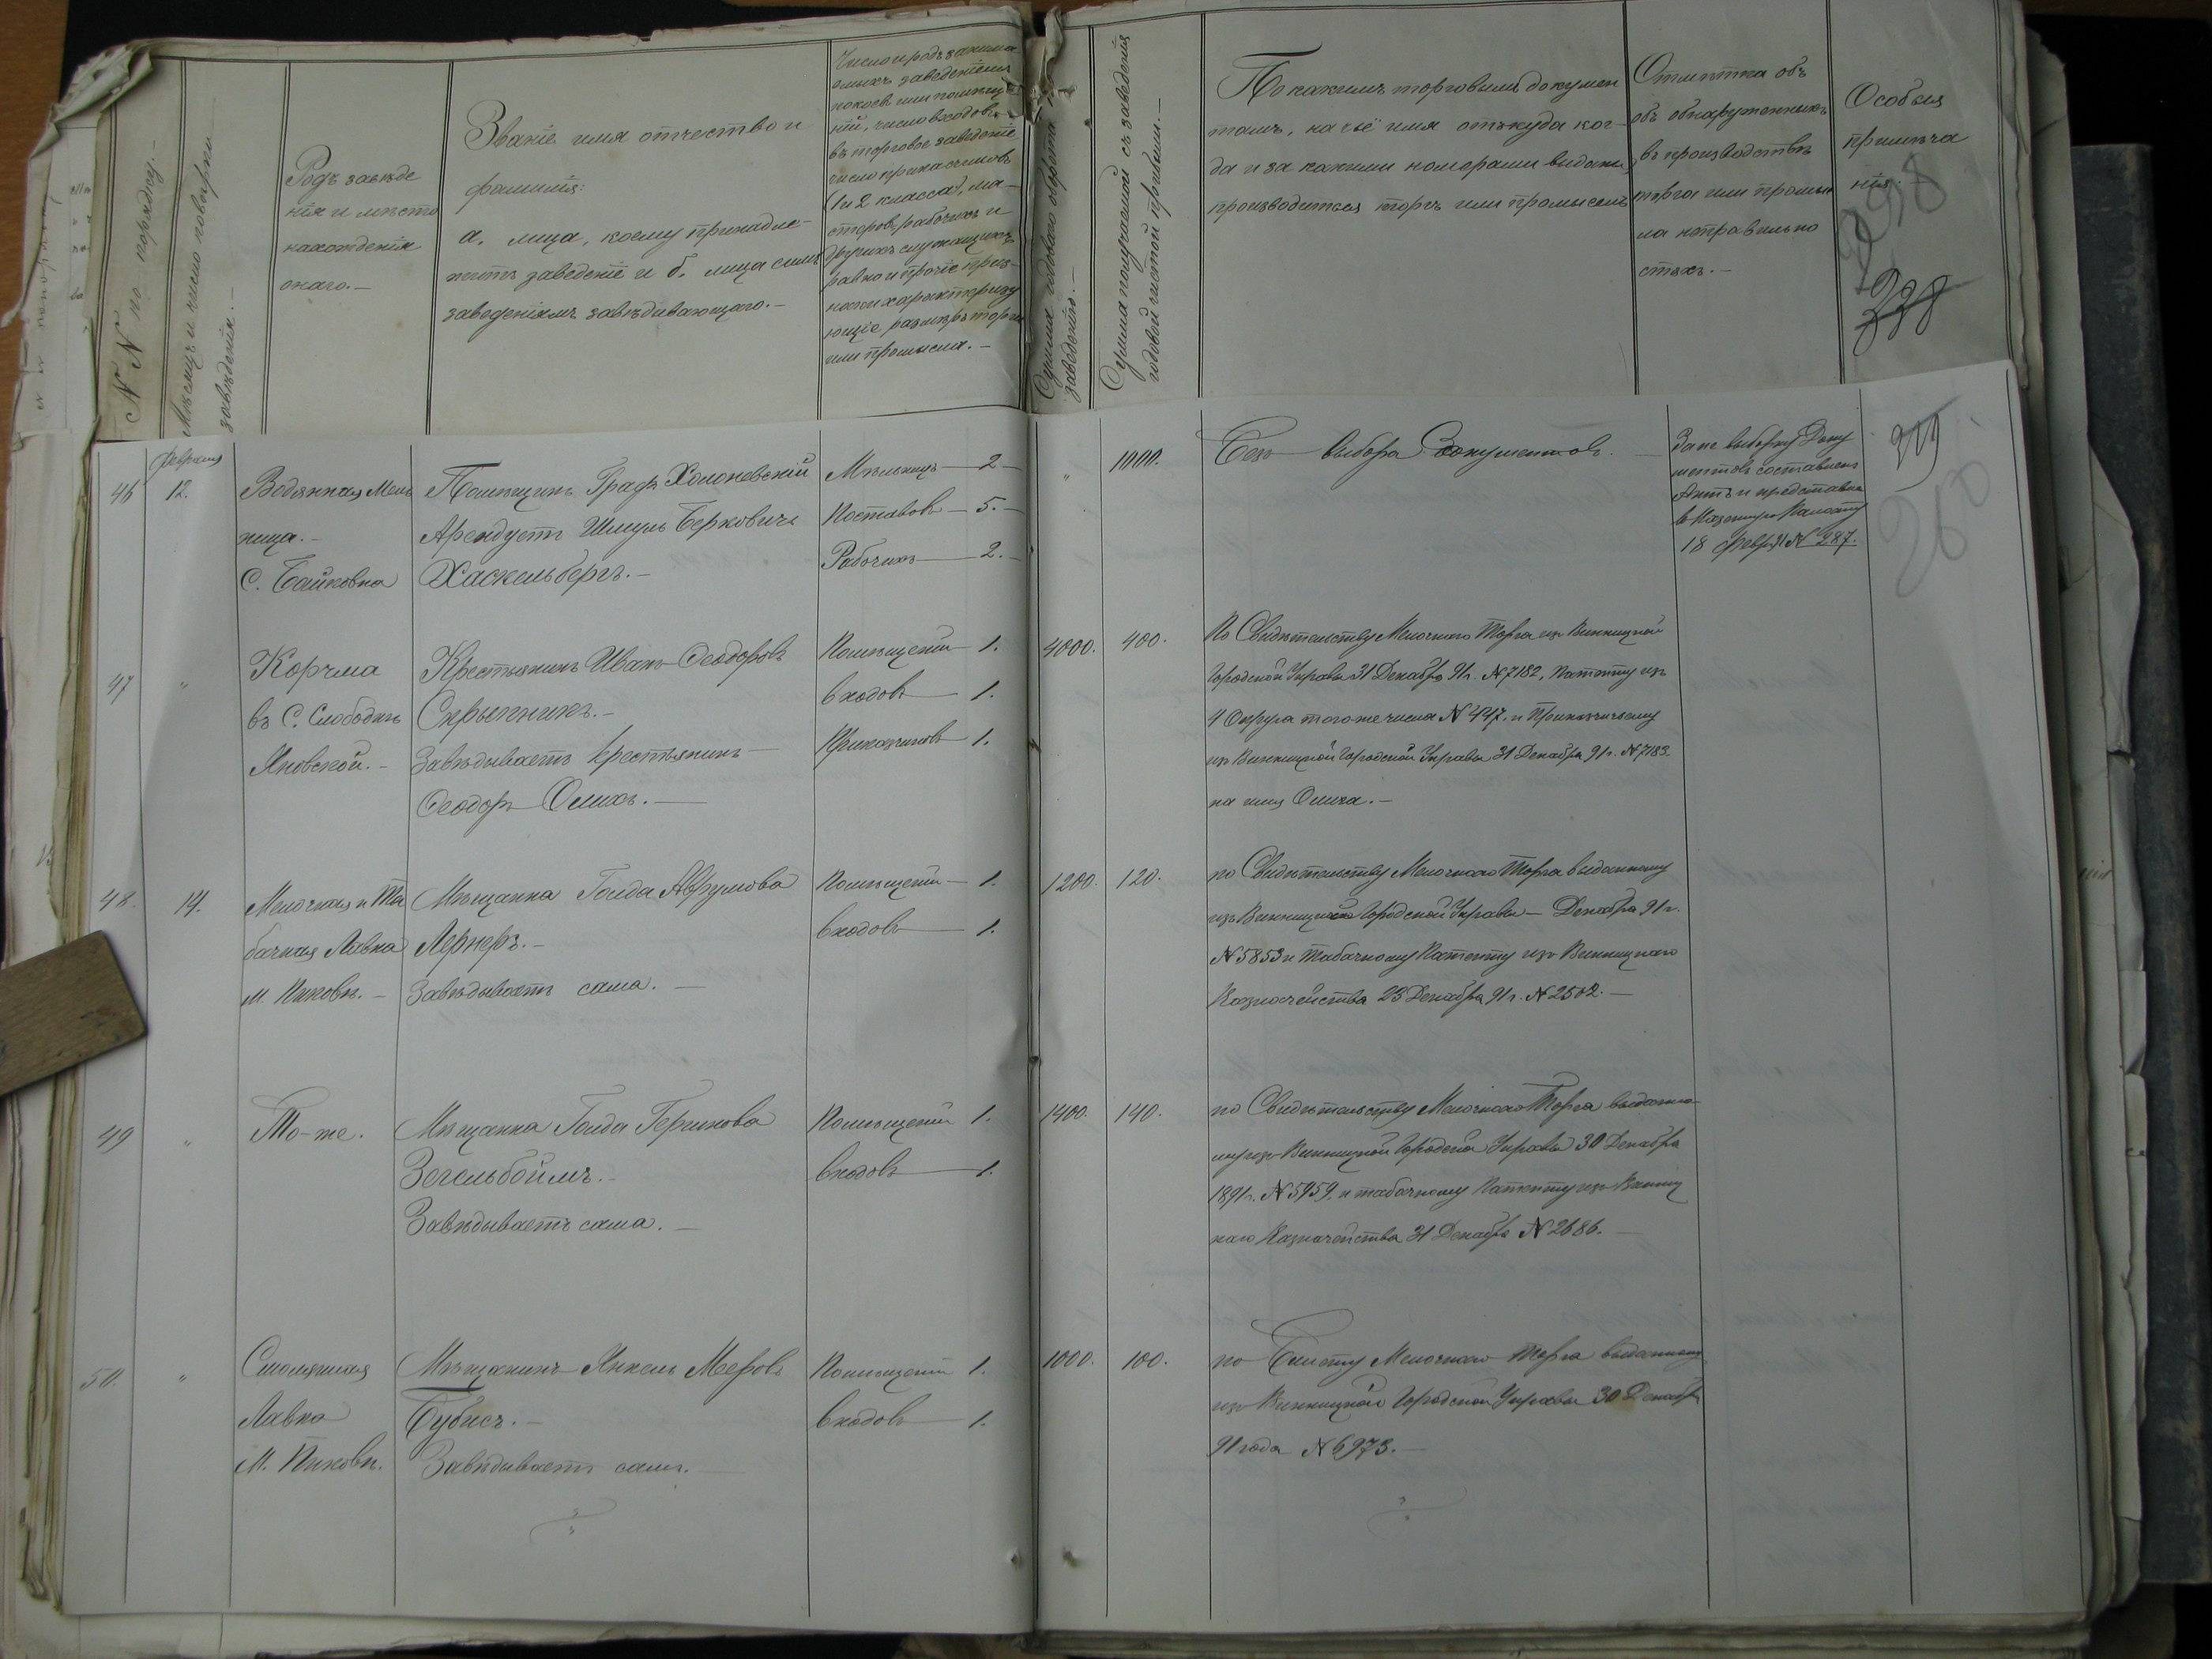 №№ по порядку.—
Мѣсяцъ и число повѣрки
заведенія.—
Родъ заведе
нія и мѣсто
нахожденія
онаго.—
Званіе имя отчество и
фамилія:
а. лица, коему принадле-
житъ заведеніе и б. лица симъ
заведеніемъ завѣдывающаго.—
Число и родъ занима
емыхъ заведеніемъ
покоевъ или помѣще
ній, число входовъ
въ торговое заведеніе
число прикащиковъ
(1 и 2 класса), ма-
стеровъ, рабочихъ и
другихъ служащихъ
равно и прочіе приз-
наки характеризу
ющіе размѣръ торга
или промысла.—
Сумма годоваго оборота по
заведенію.—
Сумма получаемой съ заведенія
годовой чистой прибыли.—
По какимъ торговымъ докумен
тамъ, на чьё имя откуда ког-
да и за какими номерами выданы
производится торгъ или промыселъ
Отмѣтка объ
объ обнаруженныхъ
въ производствѣ
торга или промы
ла неправильно
стяхъ.—
Особыя
примѣча
нія.
298
февраля
46 12. Водянная Мель
ница.—
С. Байковка
Помѣщикъ Графъ Холоневскій
Арендуетъ Шмуль Берковичъ
Хаскельбергъ.—
Мѣльницъ — 2
Поставовъ — 5.
Рабочихъ — 2.
" 1000. Безъ выбора Документовъ.—
За не выборку Доку
ментовъ составленъ
Актъ и представленъ
в Казенную Палату
18 февр. № 287.
260
47 " Корчма
въ С. Слободкѣ
Яновской.—
Крестьянинъ Иванъ Феодоровъ
Скрыпникъ.—
Завѣдываетъ Крестьянинъ
Феодоръ Олихъ.—
Помѣщеній — 1.
входовъ — 1.
Приказчиковъ 1.
4000. 400. По Свидѣтельству Мелочнаго Торга изъ Винницкой
Городской Управы 31 Декабря 91 г. № 7182, Патенту изъ
4 Округа того же числа № 447. и Приказчичьему
изъ Винницкой Городской Управы 31 Декабря 91 г. № 7183.
на имя Олиха.—
48. 14. Мелочная и Та
бачная Лавка
М. Пиковъ.—
Мѣщанка Голда Аврумова
Лернеръ.—
Завѣдываетъ сама.—
Помѣщеній — 1.
входовъ — 1.
1200. 120. по Свидѣтельству Мелочнаго Торга выданному
изъ Винницкой Городской Управы — Декабря 91 г.
№ 5853 и табачному Патенту изъ Винницкаго
Казначейства 23 Декабря 91 г. № 2502.—
49 " То-же.
Мѣщанка Голда Гершкова
Зегельбоймъ.—
Завѣдываетъ сама.—
Помѣщеній 1.
входовъ — 1.
1400. 140. по Свидѣтельству Мелочнаго Торга выданно-
му изъ Винницкой Городской Управы 30 Декабря
1891 г. № 5959, и табачному Патенту изъ Винниц
каго Казначейства 31 Декабря № 2686.—
50. " Смоляная
Лавка
М. Пиковъ.
Мѣщанинъ Янкель Мееровъ
Бубисъ.—
Завѣдываетъ самъ.—
Помѣщеній 1.
входовъ — 1.
1000. 100. по Билету Мелочнаго Торга выданному
изъ Винницкой Городской Управы 30 Декабря
91 года № 6973.—